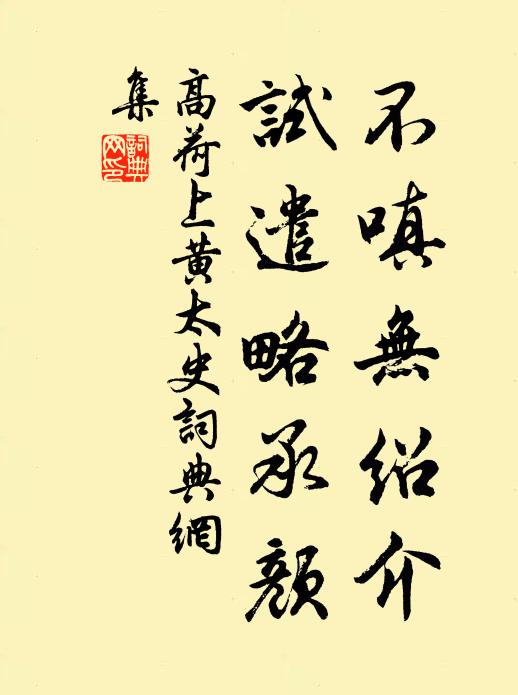 不嗔無紹介
試遣略承顏
高荷上黃太史詞典網
集
詞典
网印